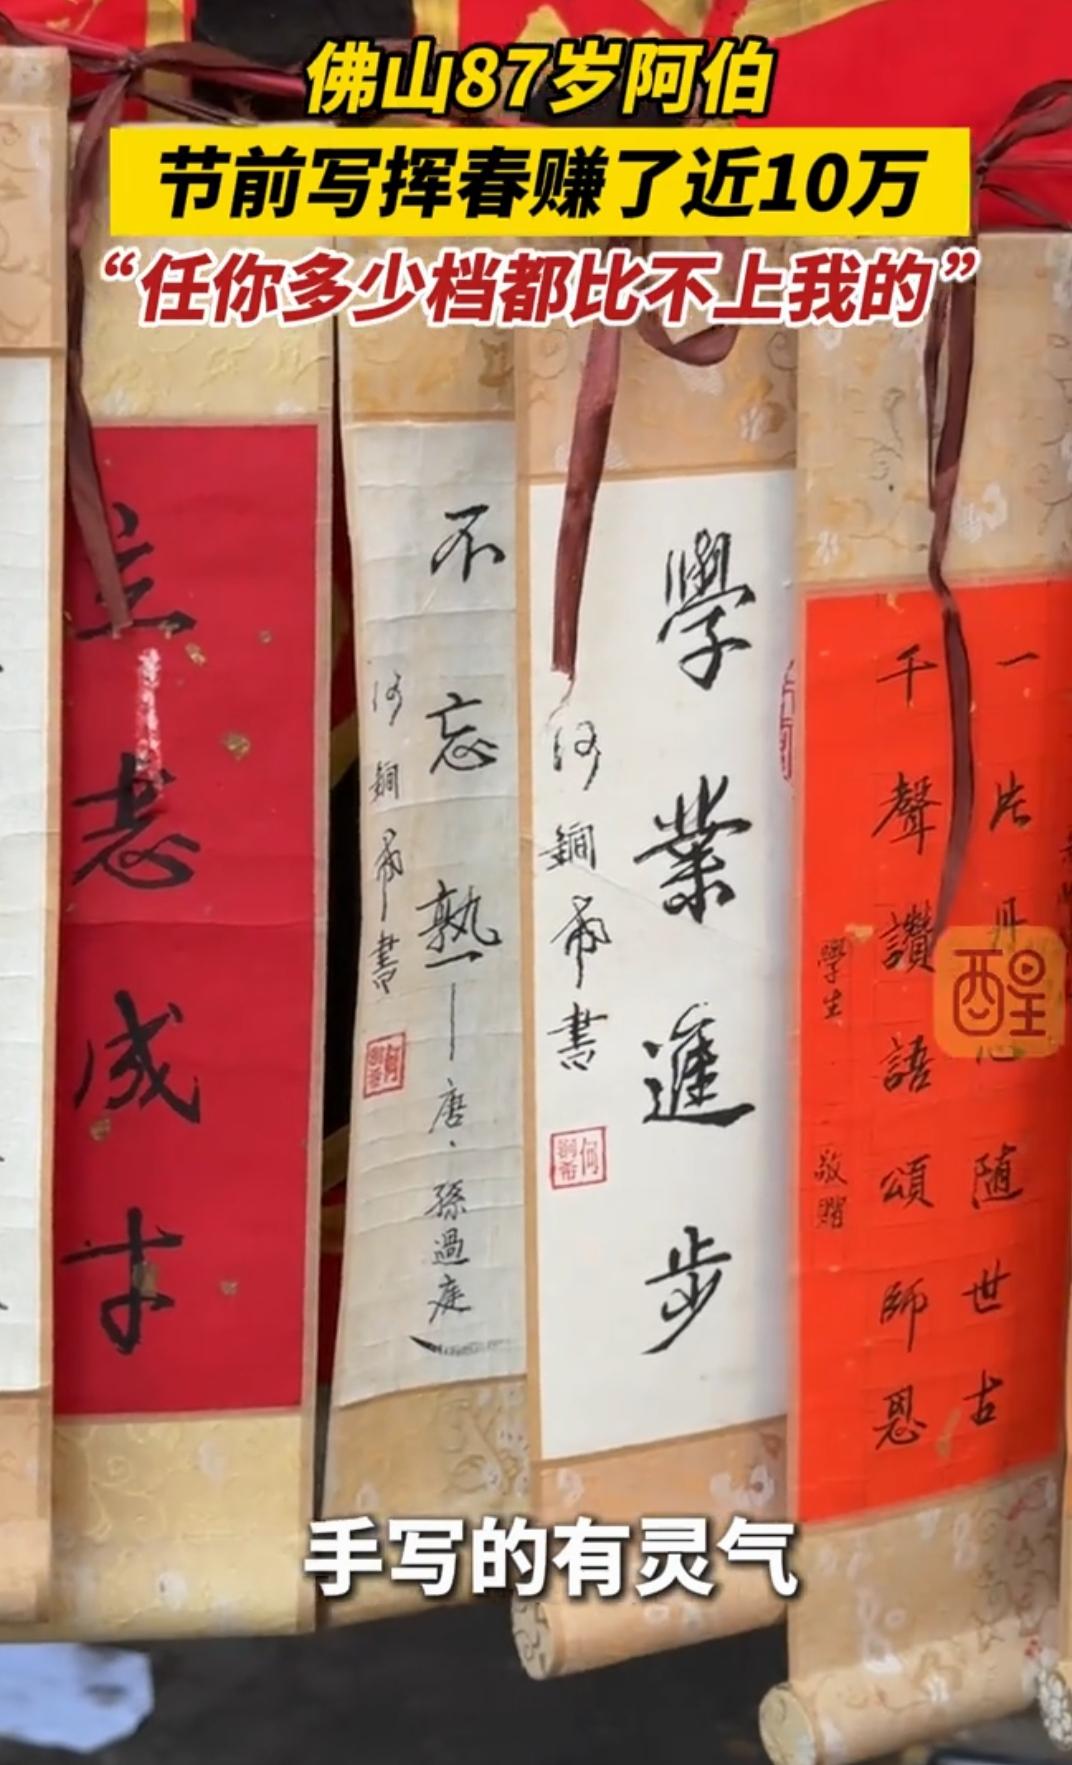 佛山87岁阿伯
节前写挥春赚了近10万
“任你多少档都比不上我的”
立志成才
不忘熟——唐·孫過庭
何銅希書
學業進步
何銅希書
一片丹心随世古
千聲讚語頌師恩
學生 敬贈
醒
手写的有灵气